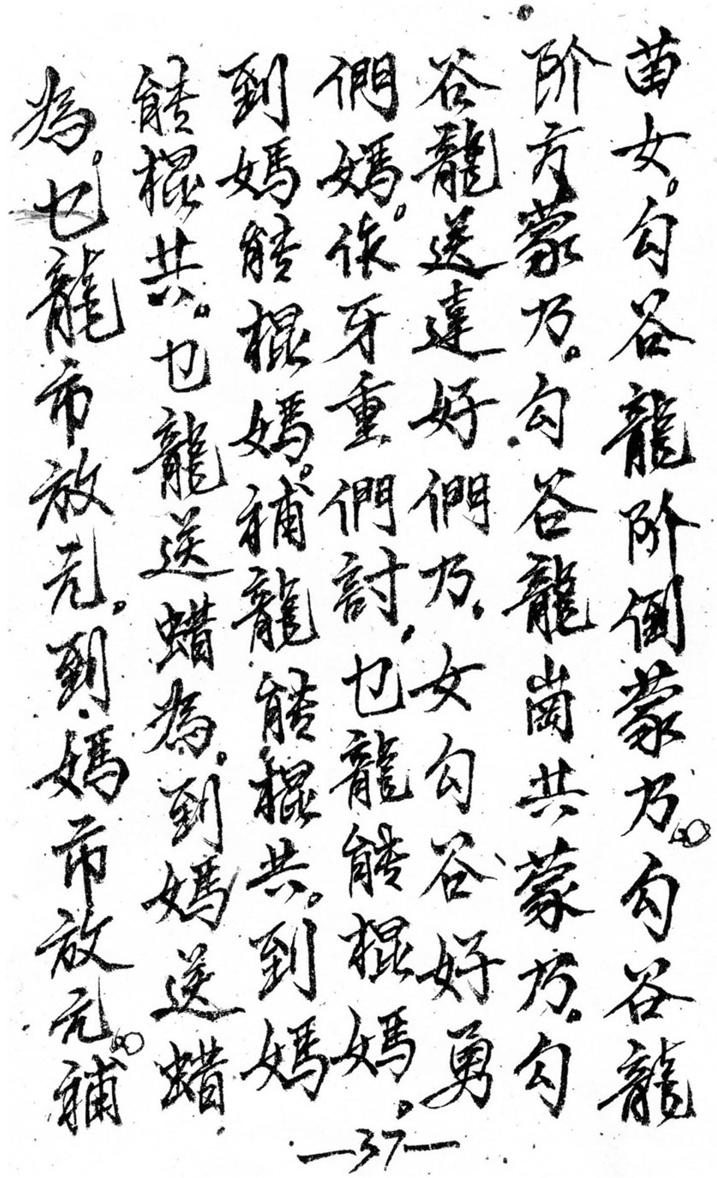 苗女。勾谷龍阶倒蒙乃。勾谷龍
阶方蒙乃。勾谷龍崗共蒙乃。勾
谷龍送達好們乃。女勾谷好勇
們媽。依牙重們討。乜龍能棍媽。
到媽能棍媽。補龍能棍共。到媽
能棍共。乜龍送蜡為。到媽送蜡
為。乜龍市放元。到媽市放元。補
—37—